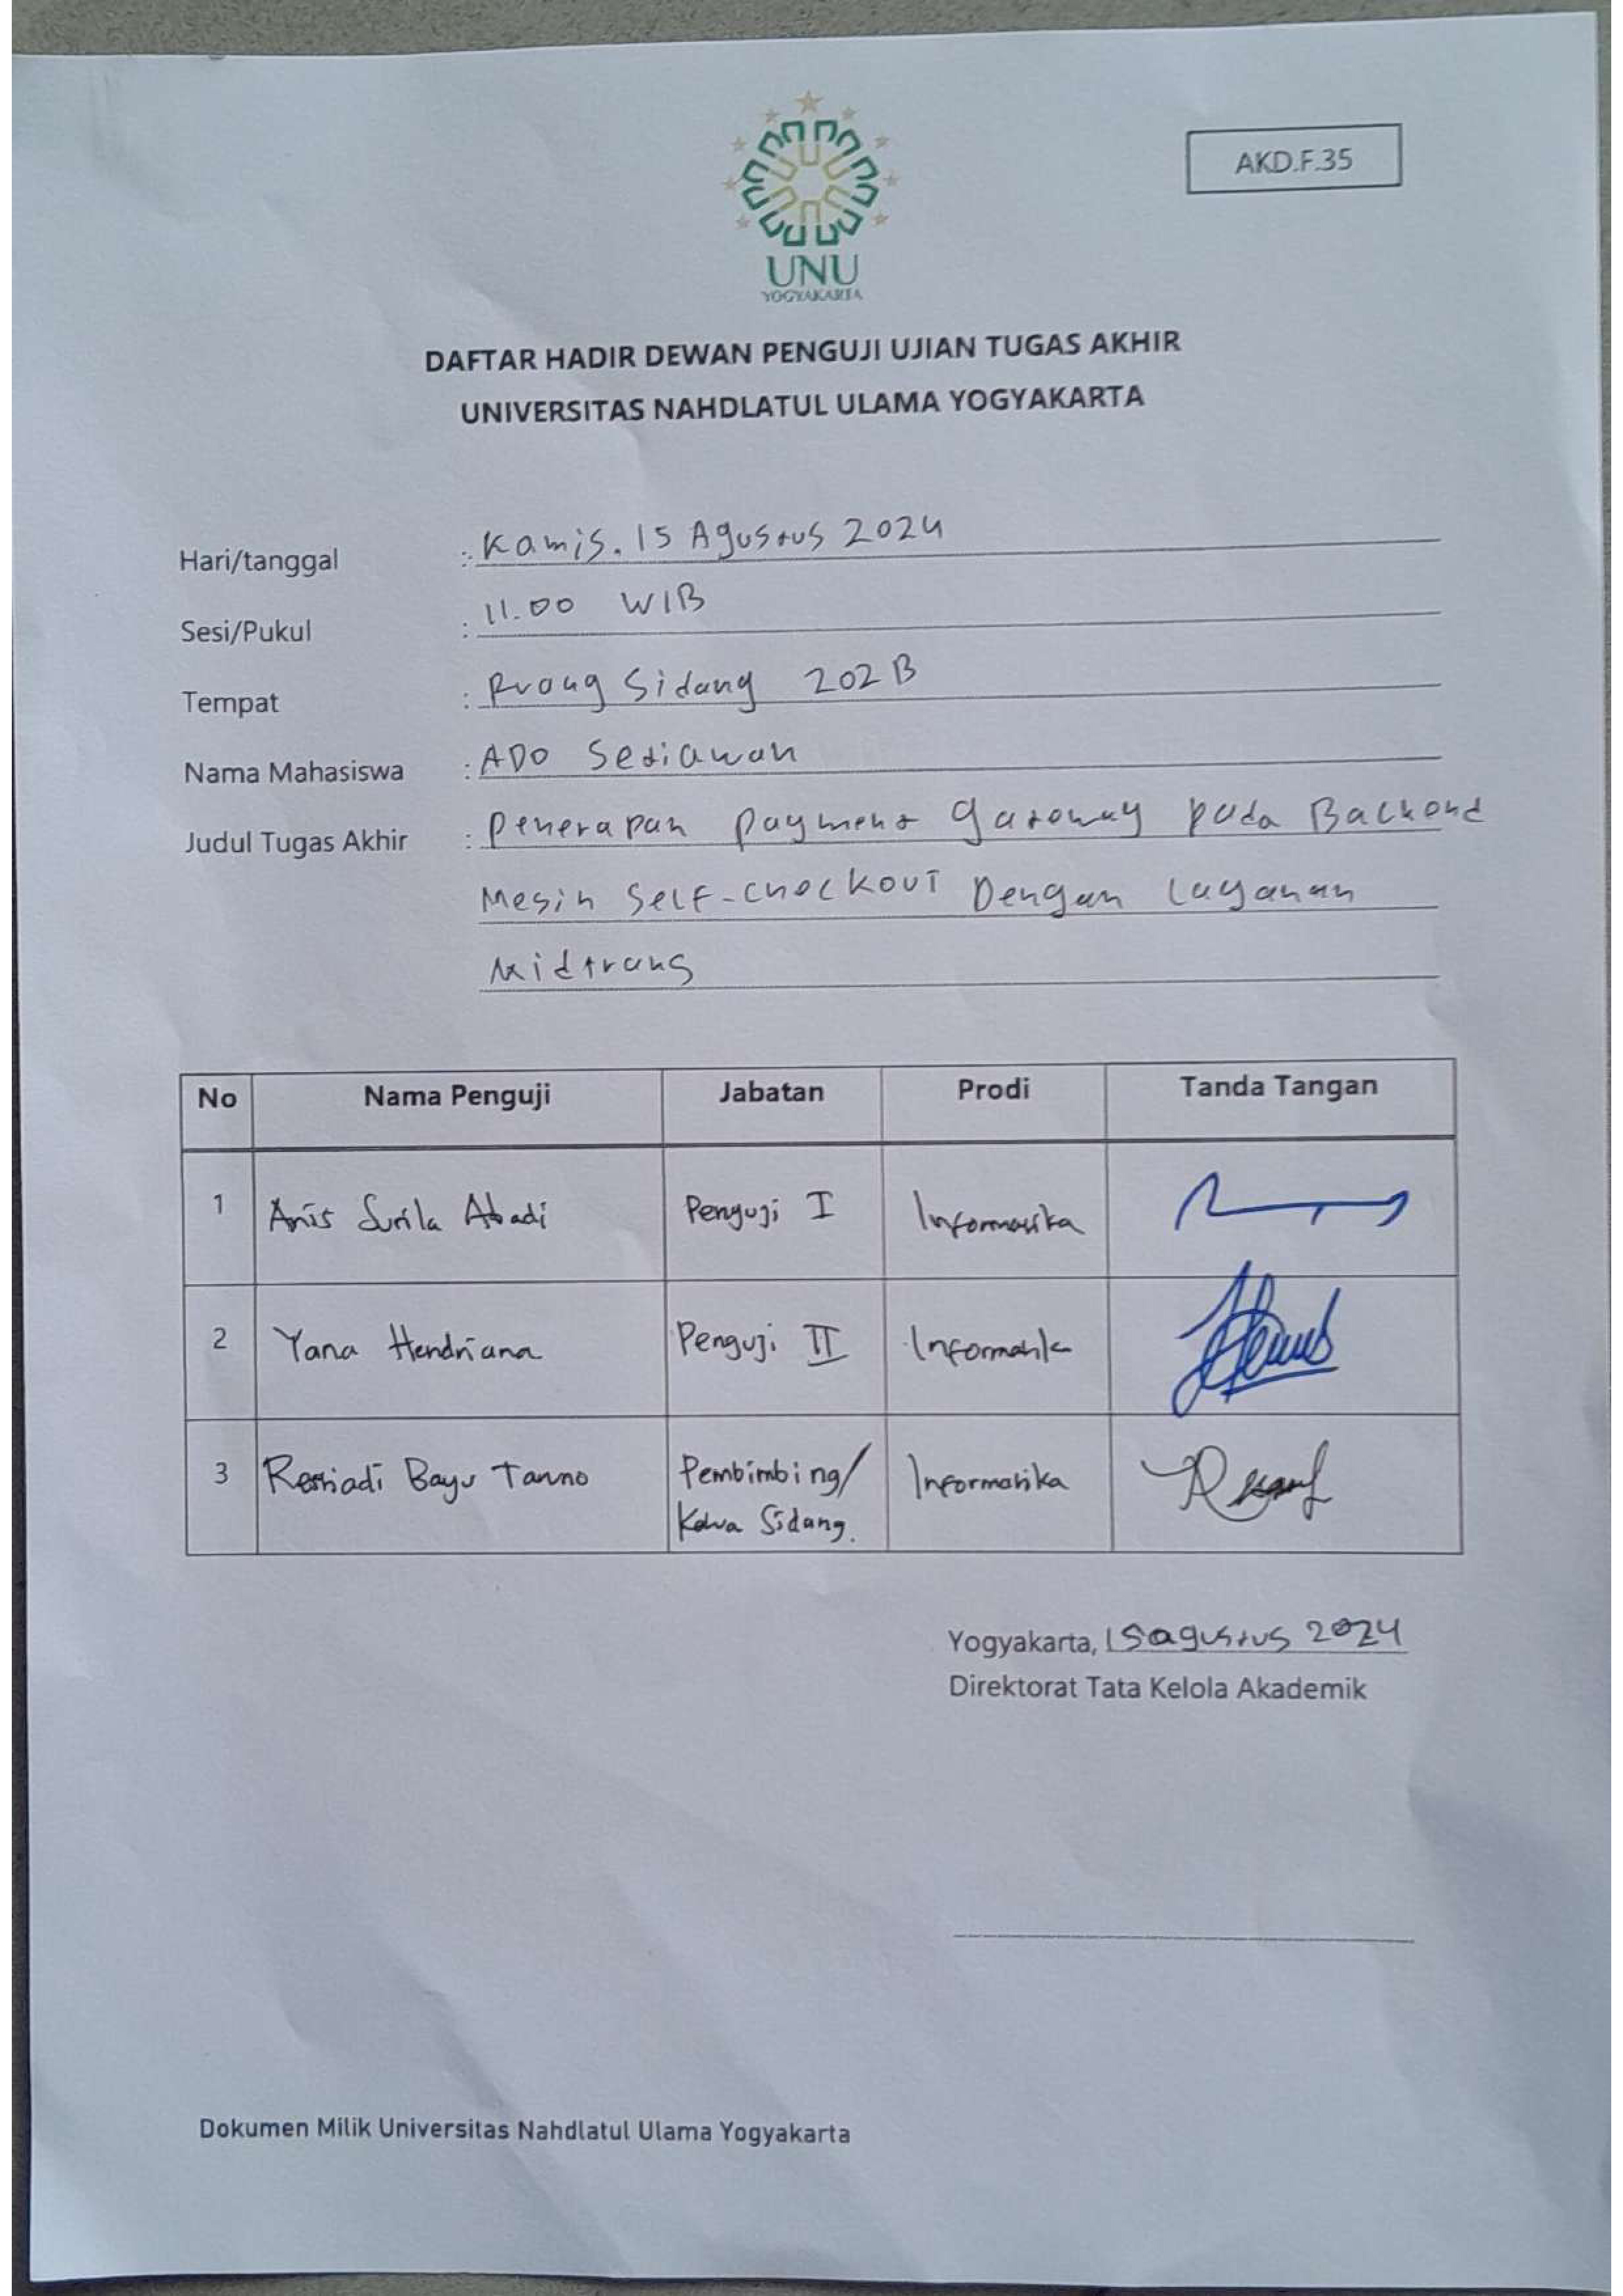 AKD.F.35
UNU
YOGYAKARTA
DAFTAR HADIR DEWAN PENGUJI UJIAN TUGAS AKHIR
UNIVERSITAS NAHDLATUL ULAMA YOGYAKARTA
Hari/tanggal : Kamis. 15 Agustus 2024
Sesi/Pukul : 11.00 WIB
Tempat : Ruang Sidang 202 B
Nama Mahasiswa : ADO Setiawan
Judul Tugas Akhir : Penerapan payment gateway pada Backend
Mesin Self-checkout Dengan Layanan
Midtrans
No Nama Penguji Jabatan Prodi Tanda Tangan
1 Anis Susila Abadi Penguji I Informatika
2 Yana Hendriana Penguji II Informatik
3 Bayu Pembimbing/ Informatika
Ketua Sidang.
Yogyakarta, 15 agustus 2024
Direktorat Tata Kelola Akademik
Dokumen Milik Universitas Nahdlatul Ulama Yogyakarta